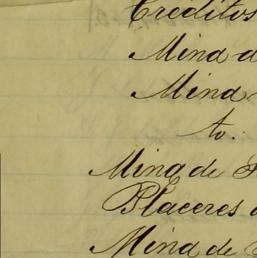 Créditos
Mina d
Mina
to.
Mina de
Placeres
Mina de